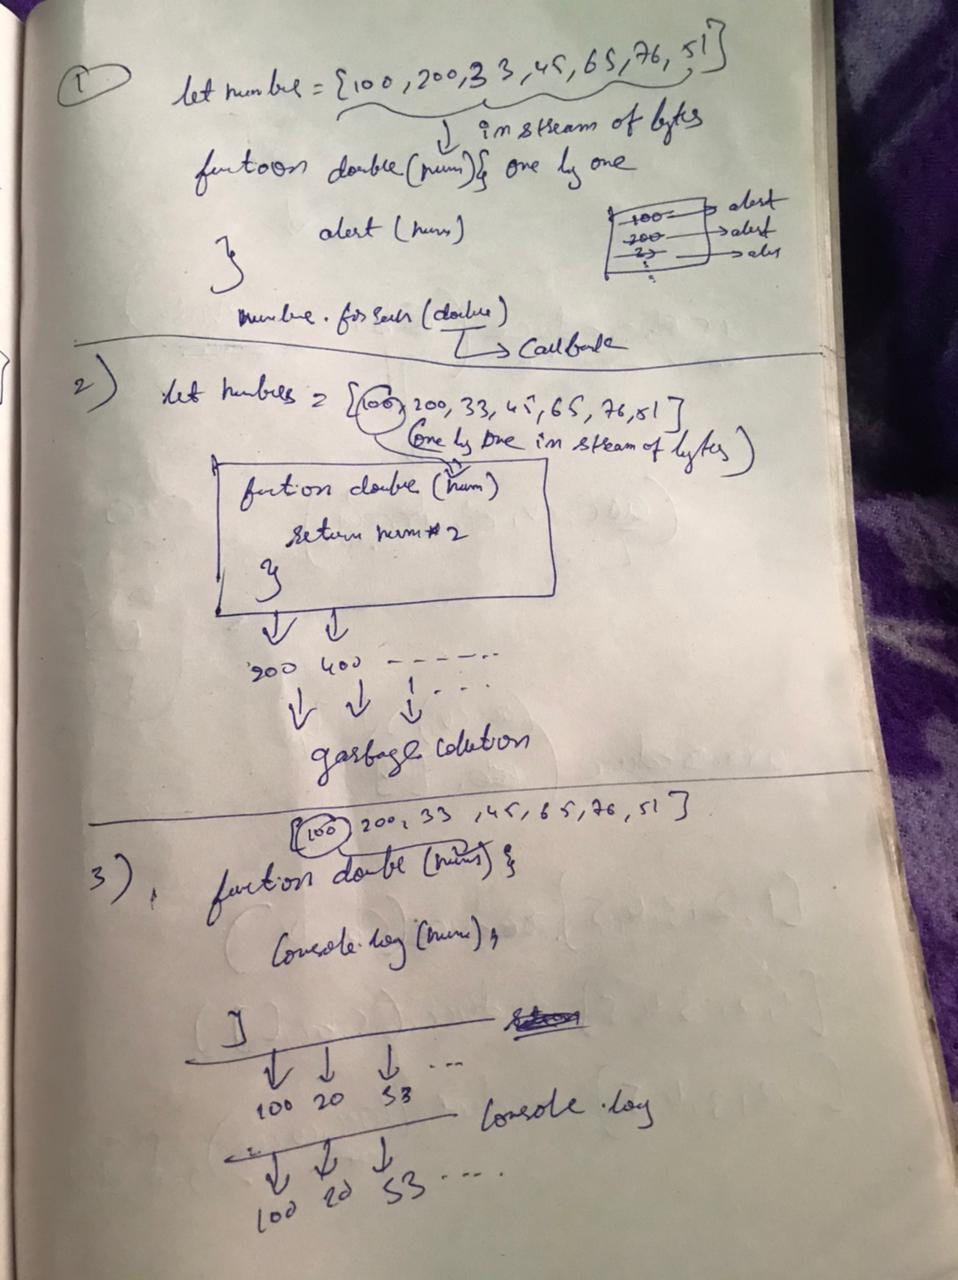 1
let numbre = [100, 200, 33, 45, 65, 76, 51]
in stream of bytes
functoon double (num) { one by one
alert (num)
100 → alert
200 → alert
→ aler
}
numbre. forEach (double)
→ Callback
2)
let numbres = [100, 200, 33, 45, 65, 76, 51]
(one by one in stream of bytes)
fuction double (num)
return num * 2
}
200 400 - - - - - ..
garbage colection
[100, 200, 33, 45, 65, 76, 51]
3).
function double (nums) {
Console.log (num);
}
...
100 20 53
Console.log
100 20 53 ....